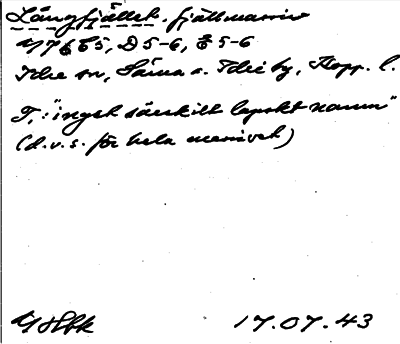 Långfjället. fjällmassiv
C5, D5-6, E5-6
Idre sn, Särna o. Idre by, Kopp. l.
F.: "inget särskilt lapskt namn"
(d.v.s. för hela massivet)
17.07.43